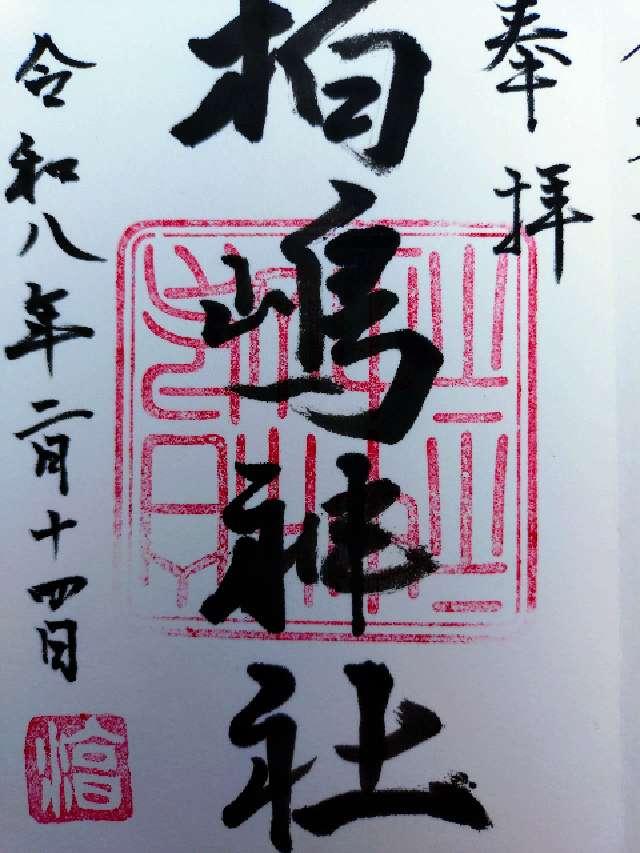 奉拝
柏嶋神社
令和八年二月十四日